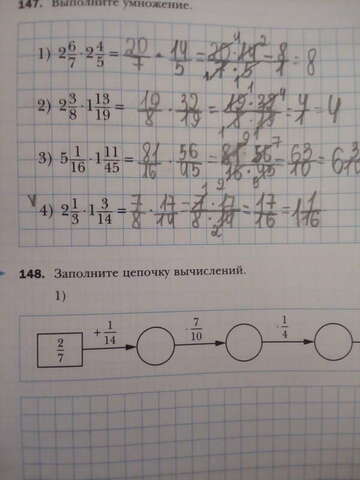 147. Выполните умножение.
1) 2 6/7 · 2 4/5 = 20/7 · 14/5 = 20·14/7·5 = 8/1 = 8
2) 2 3/8 · 1 13/19 = 19/8 · 32/19 = 19·32/8·19 = 4/1 = 4
3) 5 1/16 · 1 11/45 = 81/16 · 56/45 = 81·56/16·45 = 63/10 = 6 3/10
V 4) 2 1/3 · 1 3/14 = 7/8 · 17/14 = 7·17/8·14 = 17/16 = 1 1/16
148. Заполните цепочку вычислений.
1)
2/7 + 1/14 · 7/10 · 1/4